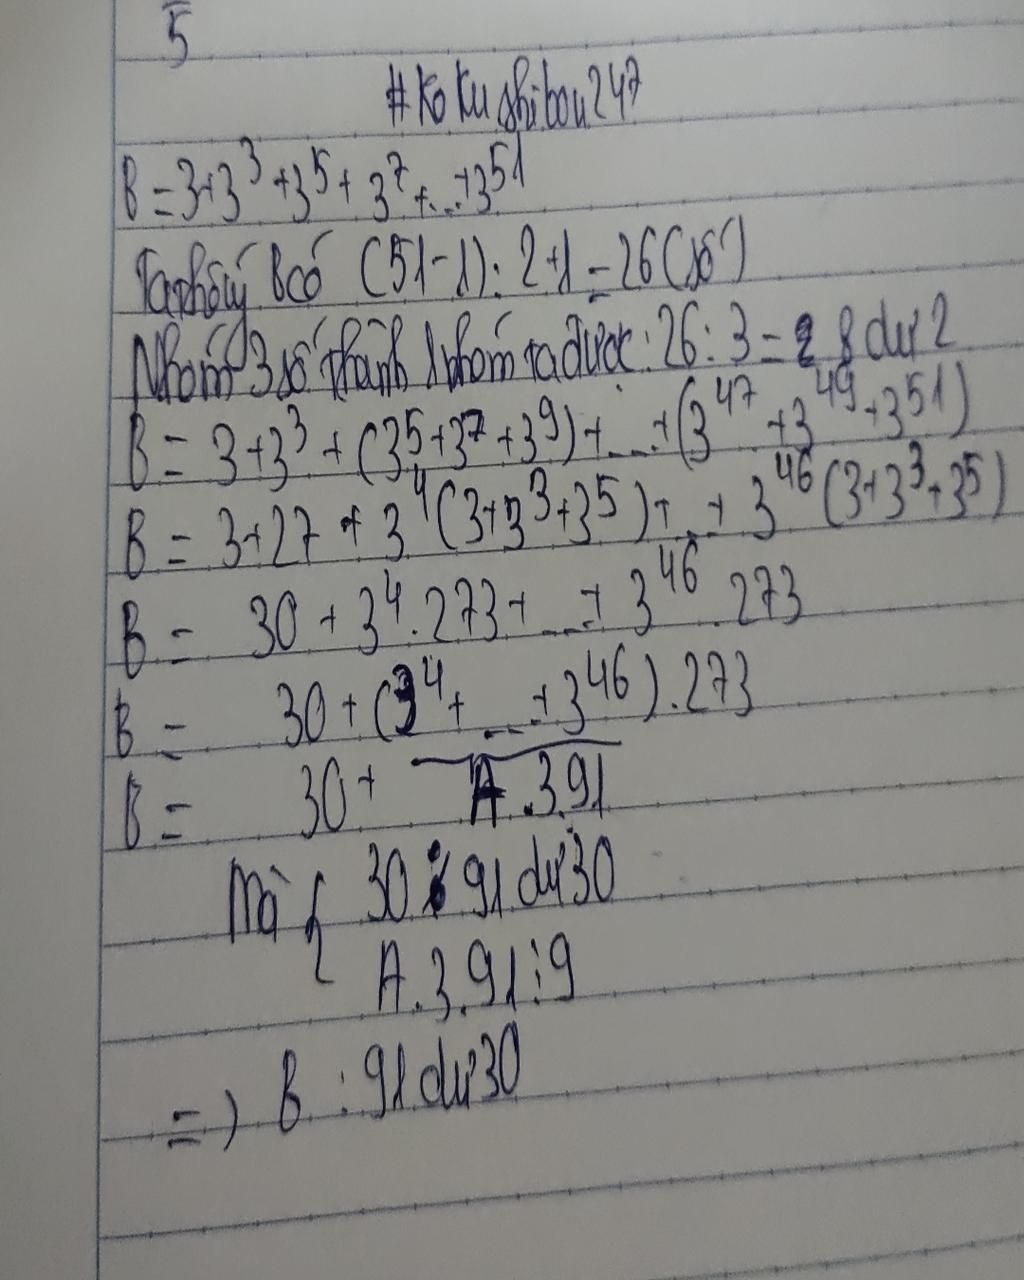 5
#Kokushibou247
B = 3+3³+3⁵+3⁷+...+3⁵¹
Ta thấy B có (51-1):2+1=26(số)
Nhóm 3 số thành 1 nhóm ta được: 26:3=8 dư 2
B = 3+3³+(3⁵+3⁷+3⁹)+...+(3⁴⁷+3⁴⁹+3⁵¹)
B = 3+27+3⁴(3+3³+3⁵)+...+3⁴⁶(3+3³+3⁵)
B = 30+3⁴.273+...+3⁴⁶.273
B = 30+(3⁴+...+3⁴⁶).273
B = 30+ A.3.91
Mà { 30 : 91 dư 30
A.3.91⋮9
=> B : 91 dư 30